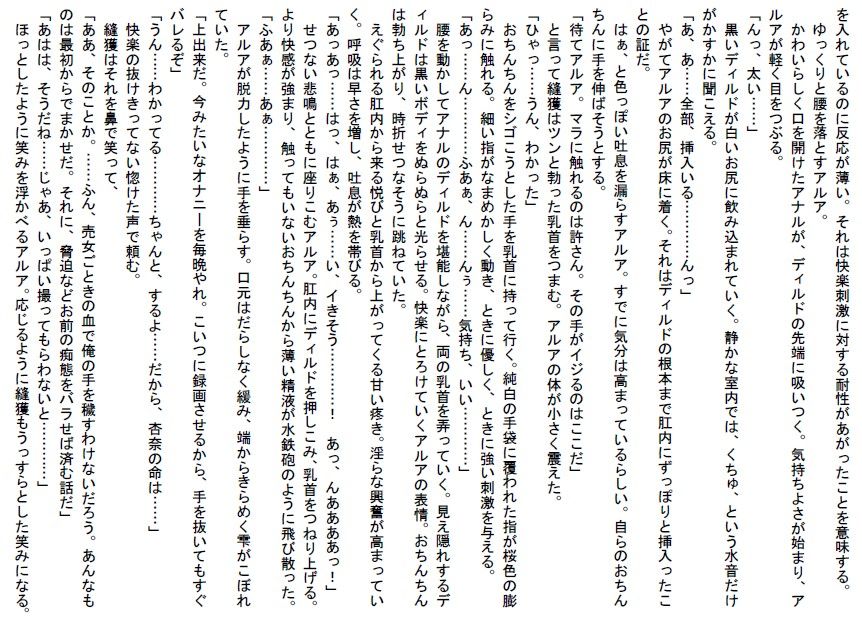 を入れているのに反応が薄い。それは快楽刺激に対する耐性があがったことを意味する。
ゆっくりと腰を落とすアルア。
かわいらしく口を開けたアナルが、ディルドの先端に吸いつく。気持ちよさが始まり、ア
ルアが軽く目をつぶる。
「んっ、太い……」
黒いディルドが白いお尻に飲み込まれていく。静かな室内では、くちゅ、という水音だけ
がかすかに聞こえる。
「あ、あ……全部、挿入いる…………んっ」
やがてアルアのお尻が床に着く。それはディルドの根本まで肛内にずっぽりと挿入ったこ
との証だ。
はぁ、と色っぽい吐息を漏らすアルア。すでに気分は高まっているらしい。自らのおちん
ちんに手を伸ばそうとする。
「待てアルア。マラに触れるのは許さん。その手がイジるのはここだ」
と言って縫獲はツンと勃った乳首をつまむ。アルアの体が小さく震えた。
「ひゃっ……うん、わかった」
おちんちんをシゴこうとした手を乳首に持って行く。純白の手袋に覆われた指が桜色の膨
らみに触れる。細い指がなまめかしく動き、ときに優しく、ときに強い刺激を与える。
「あっ……ん…………ふあぁ、ん……んぅ……気持ち、いい…………」
腰を動かしてアナルのディルドを堪能しながら、両の乳首を弄っていく。見え隠れするデ
ィルドは黒いボディをぬらぬらと光らせる。快楽にとろけていくアルアの表情。おちんちん
は勃ち上がり、時折せつなそうに跳ねていた。
えぐられる肛内から来る悦びと乳首から上がってくる甘い疼き。淫らな興奮が高まってい
く。呼吸は早さを増し、吐息が熱を帯びる。
「あっあっ……はっ、はぁ、あぅ……い、イきそう…………！　あっ、んああああっ！」
せつない悲鳴とともに座りこむアルア。肛内にディルドを押しこみ、乳首をつねり上げる。
より快感が強まり、触ってもいないおちんちんから薄い精液が水鉄砲のように飛び散った。
「ふあぁ……あぁ…………」
アルアが脱力したように手を垂らす。口元はだらしなく緩み、端からきらめく雫がこぼれ
ていた。
「上出来だ。今みたいなオナニーを毎晩やれ。こいつに録画させるから、手を抜いてもすぐ
バレるぞ」
「うん……わかってる…………ちゃんと、するよ……だから、杏奈の命は……」
快楽の抜けきってない惚けた声で頼む。
縫獲はそれを鼻で笑って、
「ああ、そのことか。……ふん、売女ごときの血で俺の手を穢すわけないだろう。あんなも
のは最初からでまかせだ。それに、脅迫などお前の痴態をバラせば済む話だ」
「あはは、そうだね……じゃあ、いっぱい撮ってもらわないと…………」
ほっとしたように笑みを浮かべるアルア。応じるように縫獲もうっすらとした笑みになる。